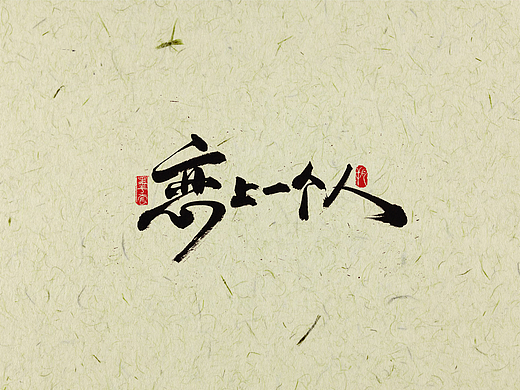 恋上一个人